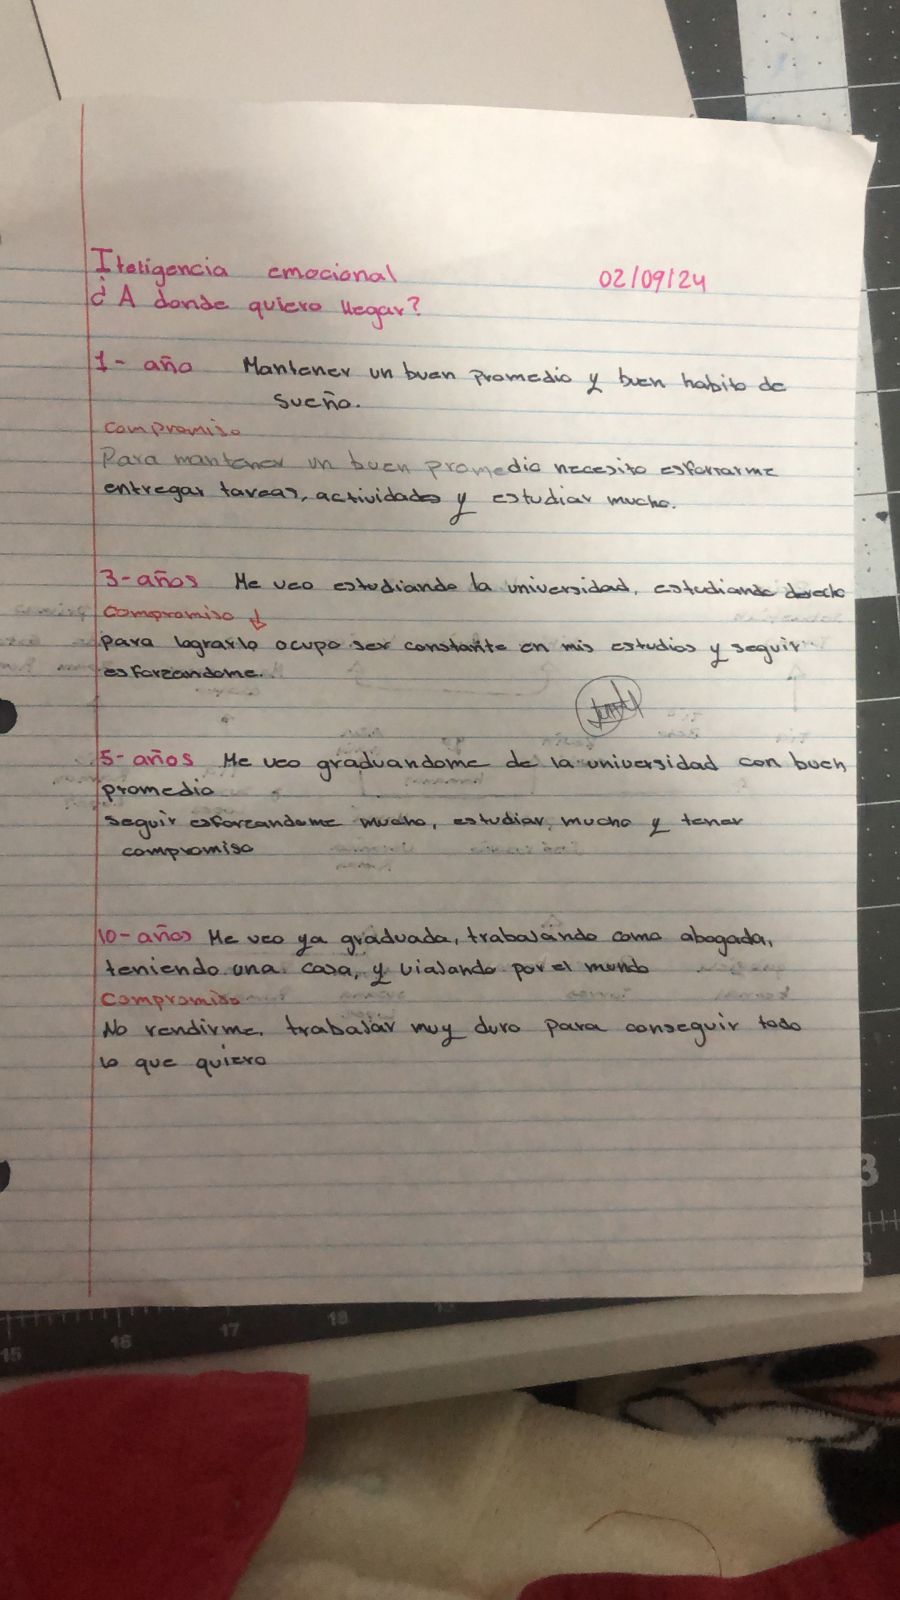 Iteligencia emocional 02/09/24
¿A donde quiero llegar?
1- año Mantener un buen promedio y buen habito de
sueño.
compromiso
Para mantener un buen promedio necesito esforzarme
entregar tareas, actividades y estudiar mucho.
3-años Me veo estudiando la universidad, estudiando derecho
compromiso
para lograrlo ocupo ser constante en mis estudios y seguir
esforzandome.
5-años Me veo graduandome de la universidad con buen
promedio
seguir esforzandome mucho, estudiar mucho y tener
compromiso
10-años Me veo ya graduada, trabajando como abogada,
teniendo una casa, y viajando por el mundo
compromiso
No rendirme, trabajar muy duro para conseguir todo
lo que quiero
15 16 17 18
3